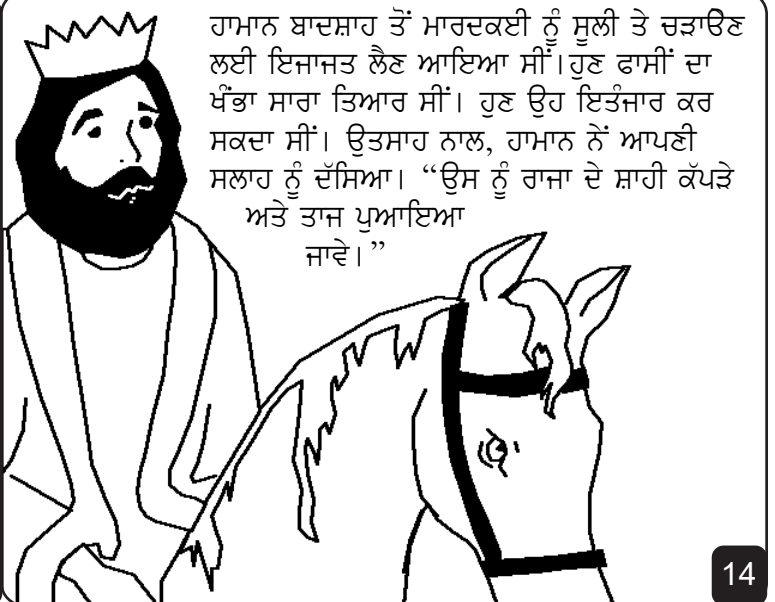 ਹਾਮਾਨ ਬਾਦਸ਼ਾਹ ਤੋਂ ਮਾਰਦਕਈ ਨੂੰ ਸੂਲੀ ਤੇ ਚੜਾਉਣ
ਲਈ ਇਜਾਜਤ ਲੈਣ ਆਇਆ ਸੀਂ।ਹੁਣ ਫਾਸੀਂ ਦਾ
ਖੰਭਾ ਸਾਰਾ ਤਿਆਰ ਸੀਂ। ਹੁਣ ਉਹ ਇਤੰਜਾਰ ਕਰ
ਸਕਦਾ ਸੀਂ। ਉਤਸਾਹ ਨਾਲ, ਹਾਮਾਨ ਨੇਂ ਆਪਣੀ
ਸਲਾਹ ਨੂੰ ਦੱਸਿਆ। “ਉਸ ਨੂੰ ਰਾਜਾ ਦੇ ਸ਼ਾਹੀ ਕੱਪੜੇ
ਅਤੇ ਤਾਜ ਪੁਆਇਆ
ਜਾਵੇ।”
14